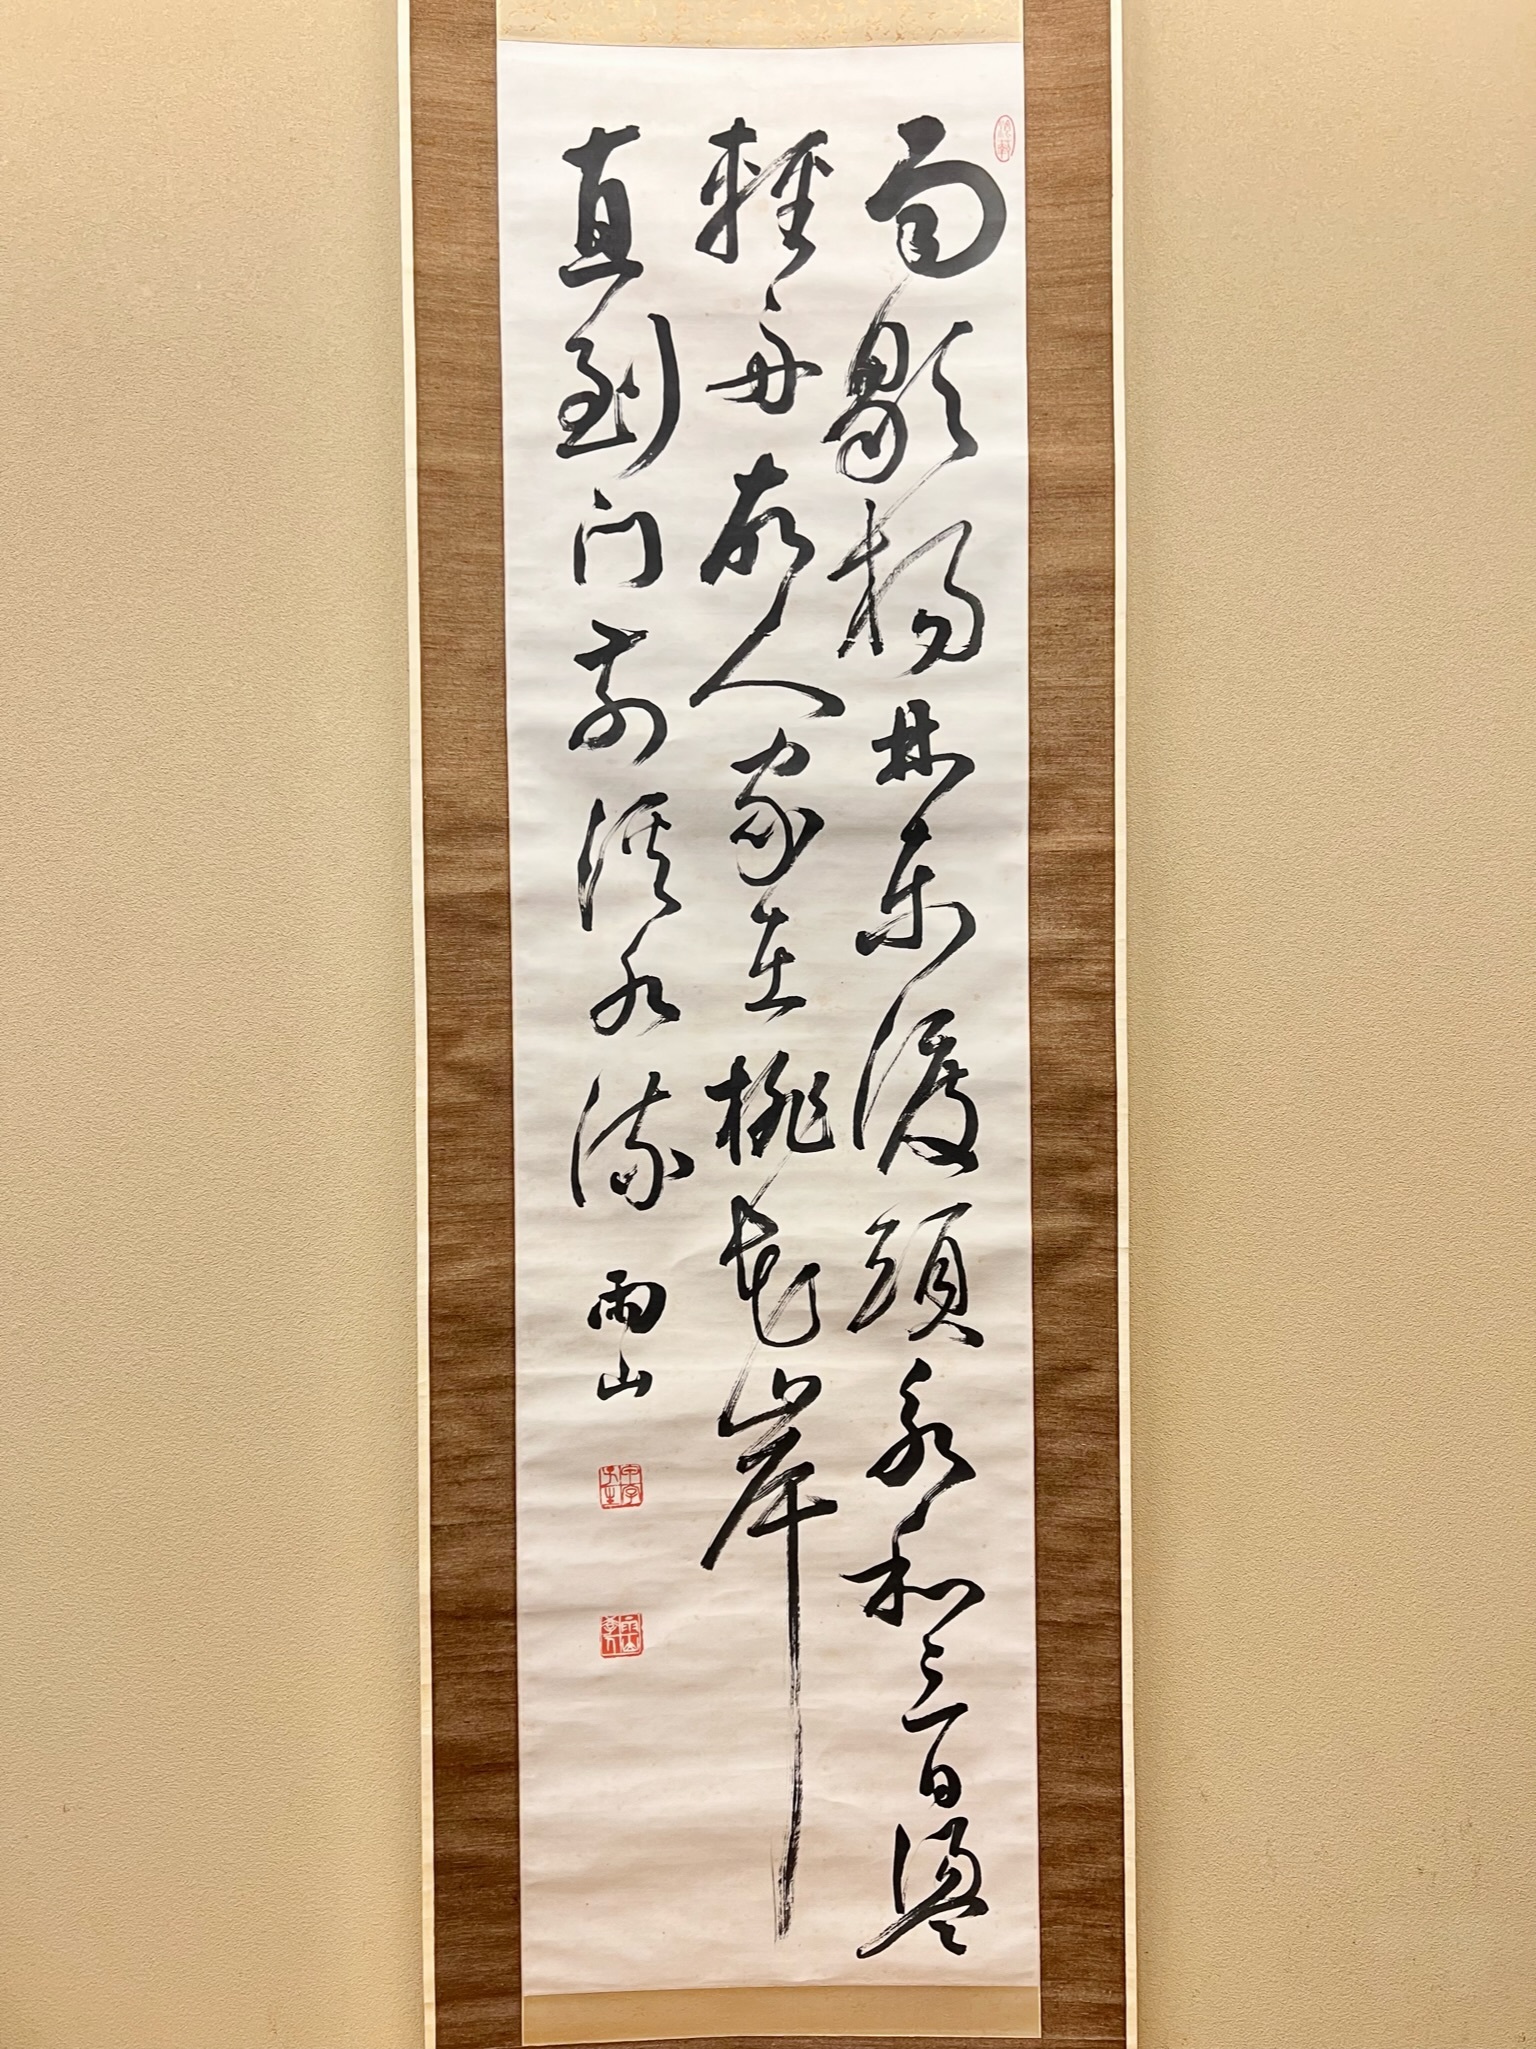 雨歇楊林東渡頭永和三日盪
輕舟故人家在桃花岸
直到門前溪水流 雨山